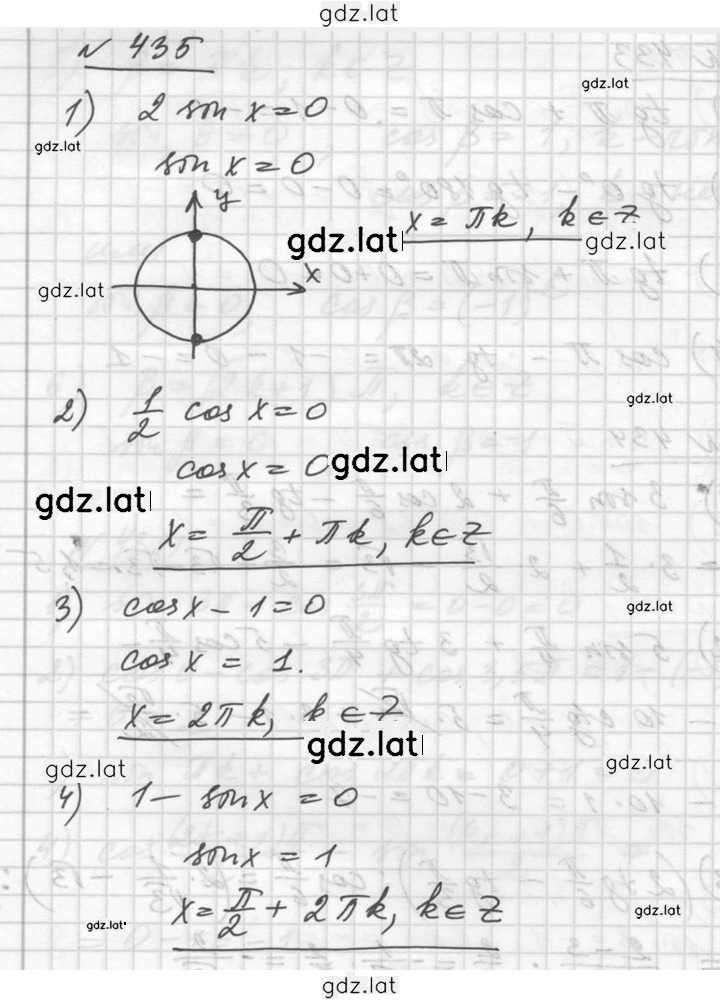 gdz.lat
№ 435
gdz.lat
1) 2 sin x = 0
gdz.lat
sin x = 0
y
x = πk, k ∈ Z
gdz.lat
gdz.lat
x
gdz.lat
2) 1/2 cos x = 0
gdz.lat
cos x = 0
gdz.lat
gdz.lat
x = π/2 + πk, k ∈ Z
3) cos x - 1 = 0
gdz.lat
cos x = 1.
x = 2πk, k ∈ Z
gdz.lat
gdz.lat
gdz.lat
4) 1 - sin x = 0
sin x = 1
x = π/2 + 2πk, k ∈ Z
gdz.lat
gdz.lat
gdz.lat